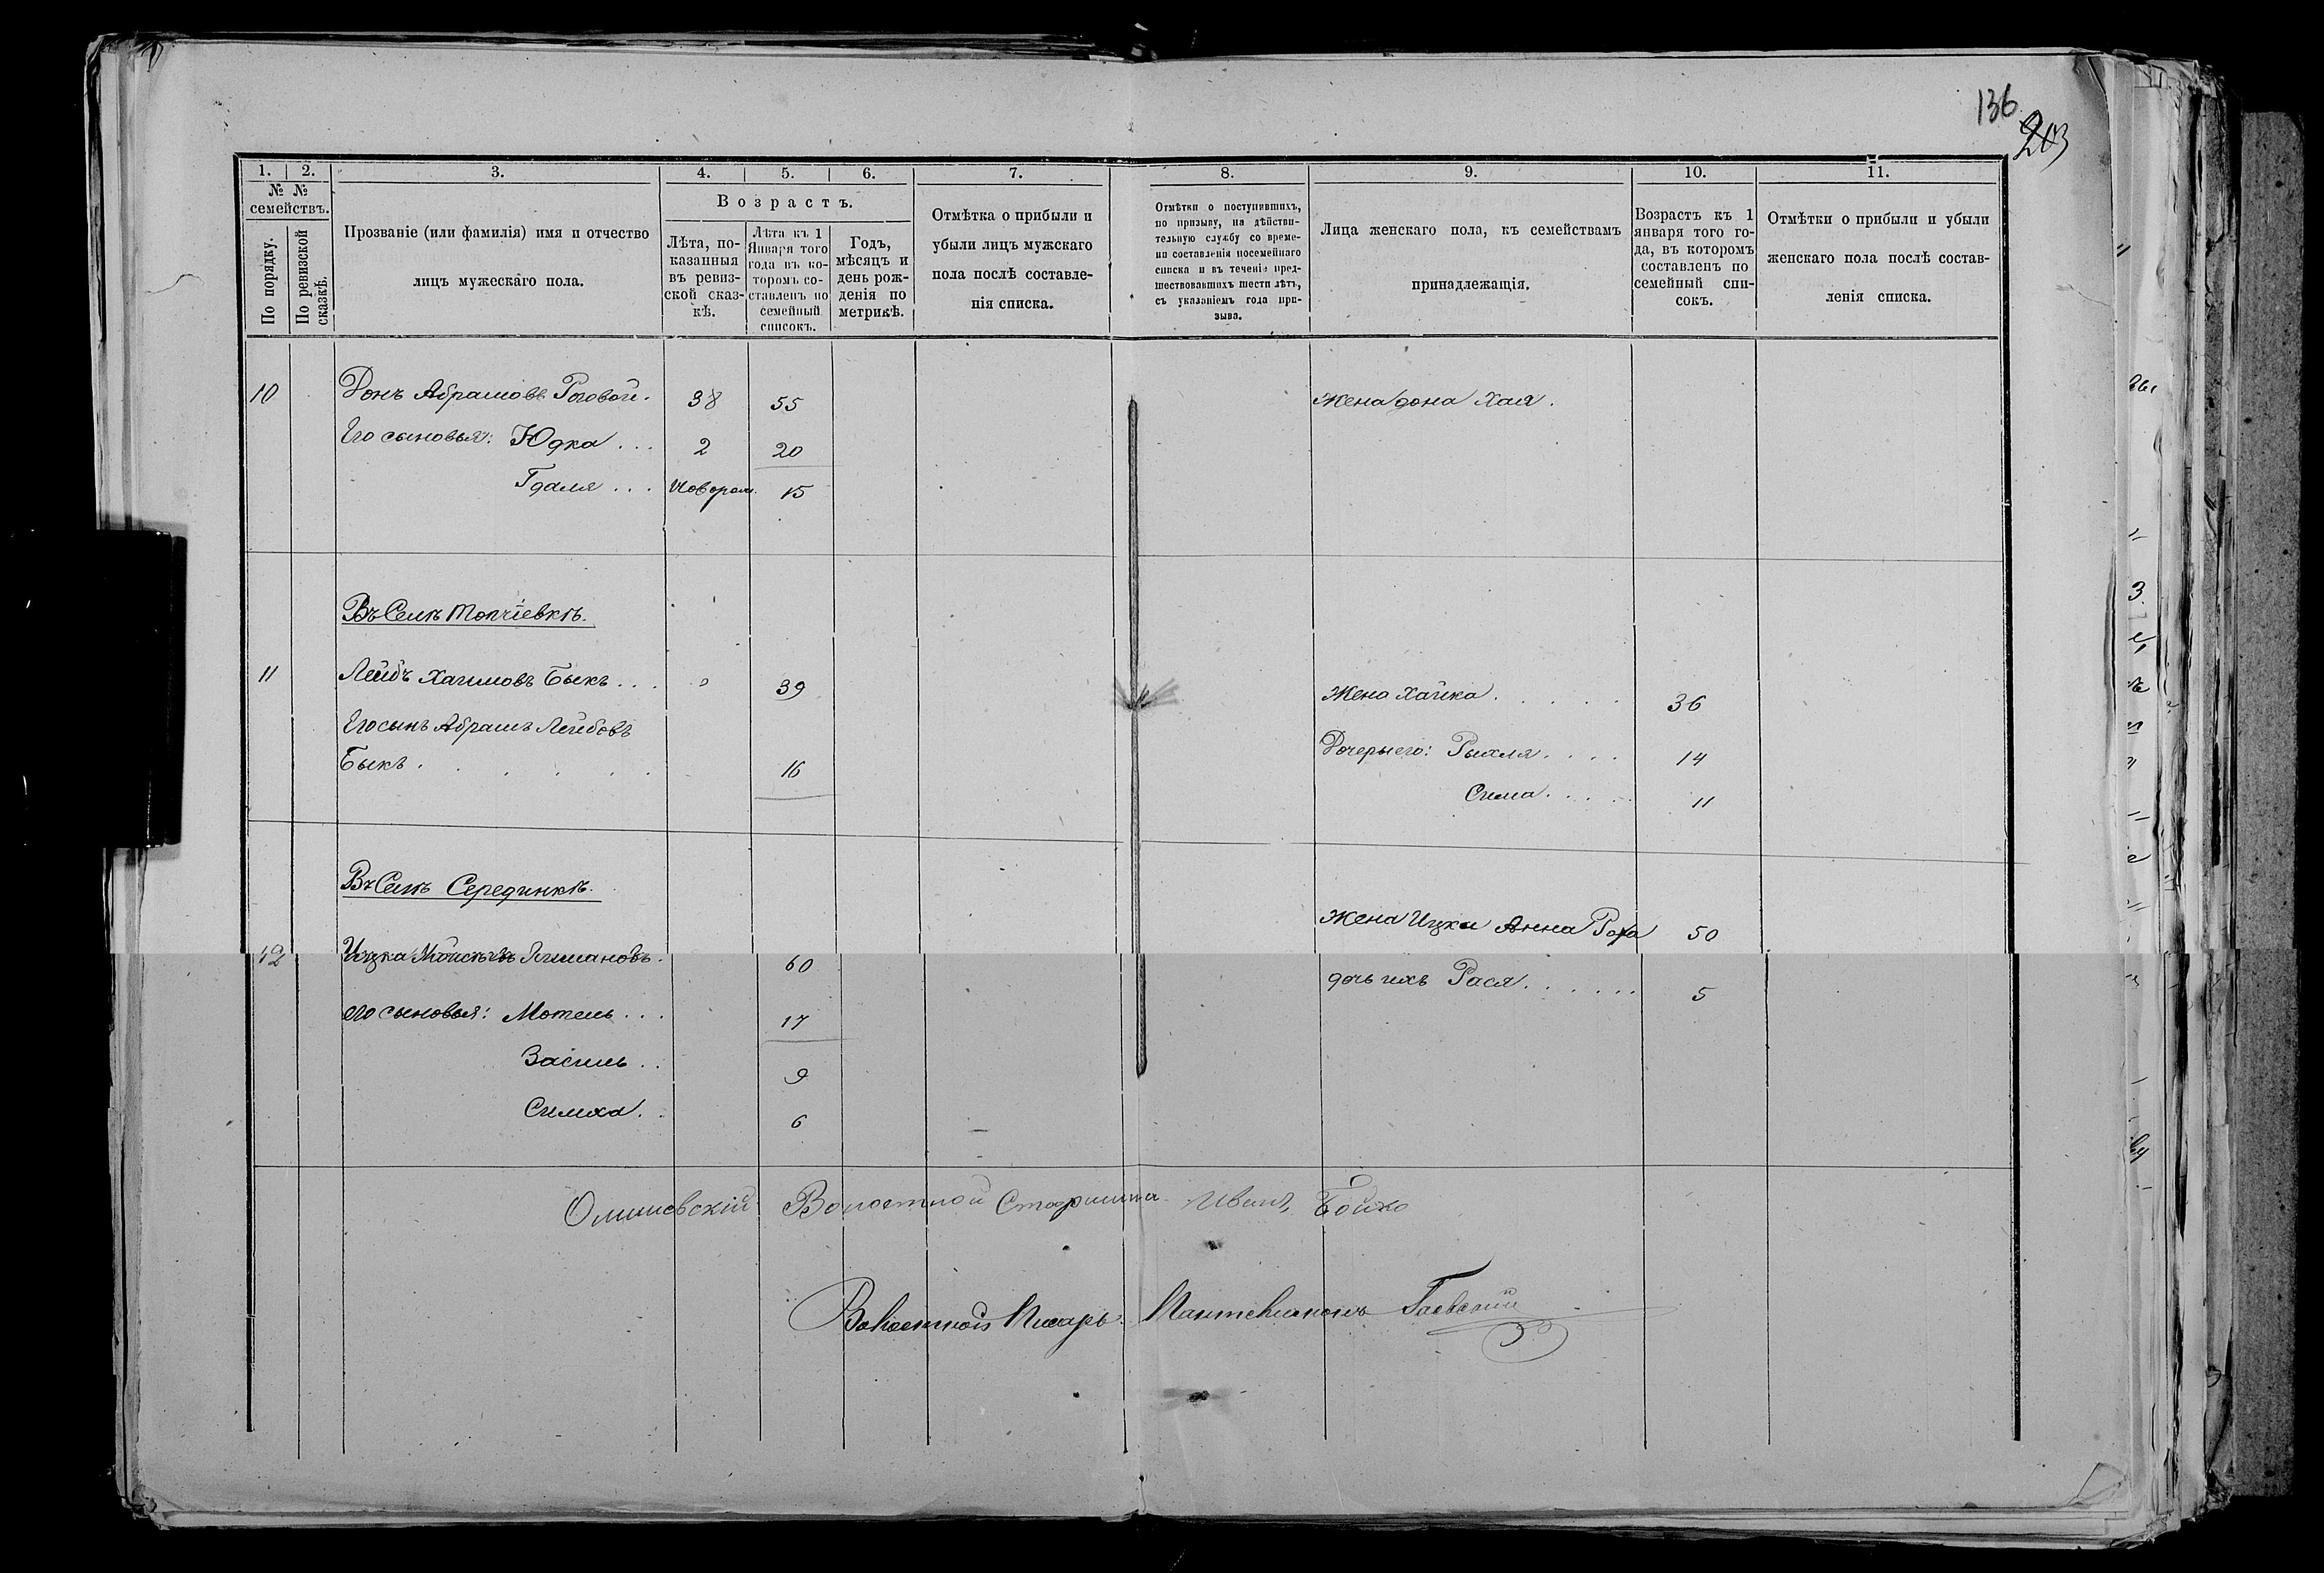 136
203
1. 2. 3. 4. 5. 6. 7. 8. 9. 10. 11.
№ № семействъ.
По порядку.
По ревизской сказкѣ.
Прозваніе (или фамилія) имя и отчество
лицъ мужескаго пола.
Возрастъ.
Лѣта, по-
казанныя
въ ревиз-
ской сказ-
кѣ.
Лѣта къ 1
Января того
года въ ко-
торомъ со-
ставленъ по
семейный
списокъ.
Годъ,
мѣсяцъ и
день рож-
денія по
метрикѣ.
Отмѣтка о прибыли и
убыли лицъ мужскаго
пола послѣ составле-
нія списка.
Отмѣтки о поступившихъ,
по призыву, на дѣйстви-
тельную службу со време-
ни составленія посемейнаго
списка и въ теченіе пред-
шествовавшихъ шести лѣтъ,
съ указаніемъ года при-
зыва.
Лица женскаго пола, къ семействамъ
принадлежащія.
Возрастъ къ 1
января того го-
да, въ которомъ
составленъ по
семейный спи-
сокъ.
Отмѣтки о прибыли и убыли
женскаго пола послѣ состав-
ленія списка.
10 Донъ Абрамовъ Роговой. 38 55 Жена дона Хая.
Его сыновья: Юдка... 2 20
Гдаля... Новорож. 15
Въ Селѣ Топчіевкѣ.
11 Лейбъ Хаимовъ Быкъ... 39 Жена Хайка..... 36
Его сынъ Абрамъ Лейбовъ
Быкъ..... 16
Дочеры его: Рыхля.... 14
Сима.... 11
Въ Селѣ Серединкѣ.
Жена Ицки Анна Рора 50
12 Ицка 60
дочь ихъ Рася...... 5
его сыновья: Мотель... 17
Засиль.. 9
Симха.. 6
Олишевскій Волостной Старшина Иванъ Бойко
Волостной Писарь Пантелимонъ Гаевский